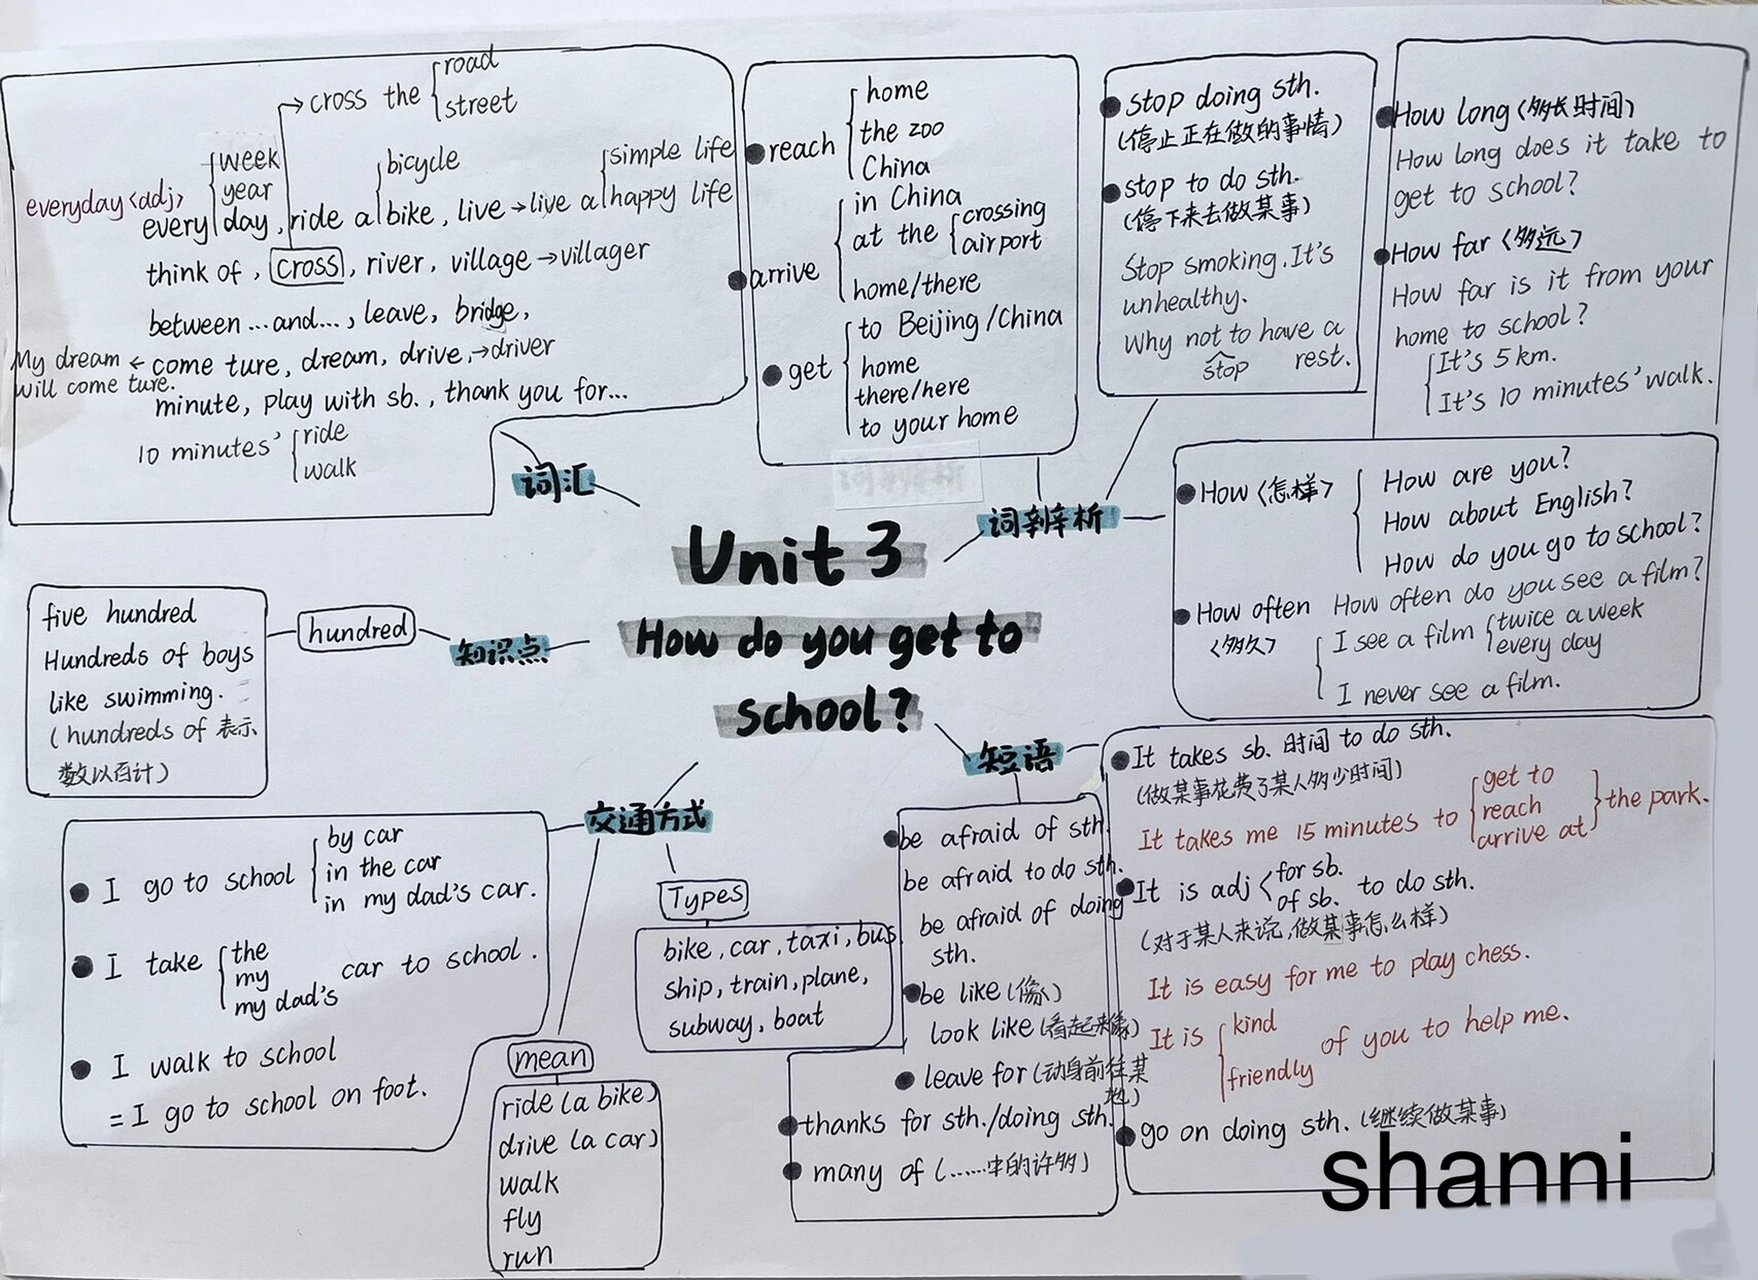 Unit 3
How do you get to
school?
词汇
cross the road
street
everyday <adj>
week
year
every day, ride a bike, live → live a happy life
bicycle
simple life
think of, cross, river, village → villager
between ... and..., leave, bridge,
My dream ← come ture, dream, drive, → driver
will come ture.
minute, play with sb., thank you for...
10 minutes' ride
walk
词辨析
reach home
the zoo
China
arrive in China
at the crossing
airport
home/there
get to Beijing/China
home
there/here
to your home
stop doing sth.
(停止正在做的事情)
stop to do sth.
(停下来去做某事)
Stop smoking. It's
unhealthy.
Why not to have a
stop rest.
How long <多长时间>
How long does it take to
get to school?
How far <多远>
How far is it from your
home to school?
It's 5 km.
It's 10 minutes' walk.
How <怎样> How are you?
How about English?
How do you go to school?
How often How often do you see a film?
<多久> I see a film twice a week
every day
I never see a film.
知识点
hundred
five hundred
Hundreds of boys
like swimming.
(hundreds of 表示
数以百计)
短语
It takes sb. 时间 to do sth.
(做某事花费了某人多少时间)
It takes me 15 minutes to get to the park.
reach
arrive at
It is adj for sb. to do sth.
of sb.
(对于某人来说,做某事怎么样)
It is easy for me to play chess.
It is kind of you to help me.
friendly
go on doing sth. (继续做某事)
be afraid of sth.
be afraid to do sth.
be afraid of doing
sth.
be like (像)
look like (看起来像)
leave for (动身前往某
地)
thanks for sth./doing sth.
many of (......中的许多)
交通方式
I go to school by car
in the car
in my dad's car.
I take the car to school.
my
my dad's
I walk to school
= I go to school on foot.
Types
bike, car, taxi, bus
ship, train, plane,
subway, boat
mean
ride (a bike)
drive (a car)
walk
fly
run
shanni